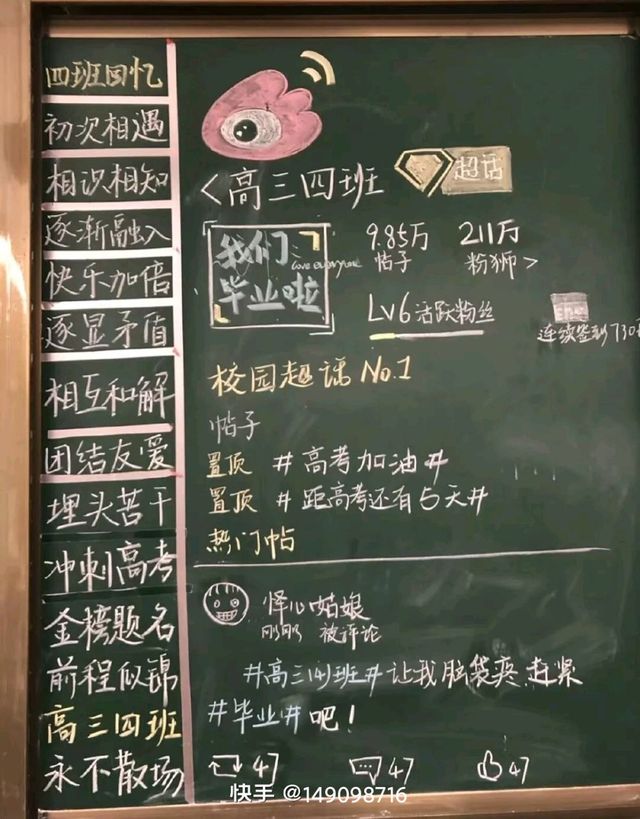 四班回忆
初次相遇
相识相知
逐渐融入
快乐加倍
逐显矛盾
相互和解
团结友爱
埋头苦干
冲刺高考
金榜题名
前程似锦
高三四班
永不散场
<高三四班 超话
我们
love everyone
毕业啦
9.85万 211万
帖子 粉狮>
Lv6 活跃粉丝
连续签到730天
校园超话 No.1
帖子
置顶 #高考加油#
置顶 #距高考还有5天#
热门帖
怿心姑娘
刚刚 被评论
#高三四班#让我脑袋疼 赶紧
#毕业#吧!
47 47 47
快手 @149098716